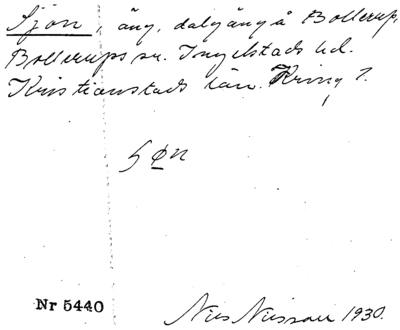 Sjön, äng, dalgång å Bollerup,
Bollerups sn. Ingelstads hd.
Kristianstads län. Kring 1.
ʃøn
Nr 5440 Nils Nilsson 1930.